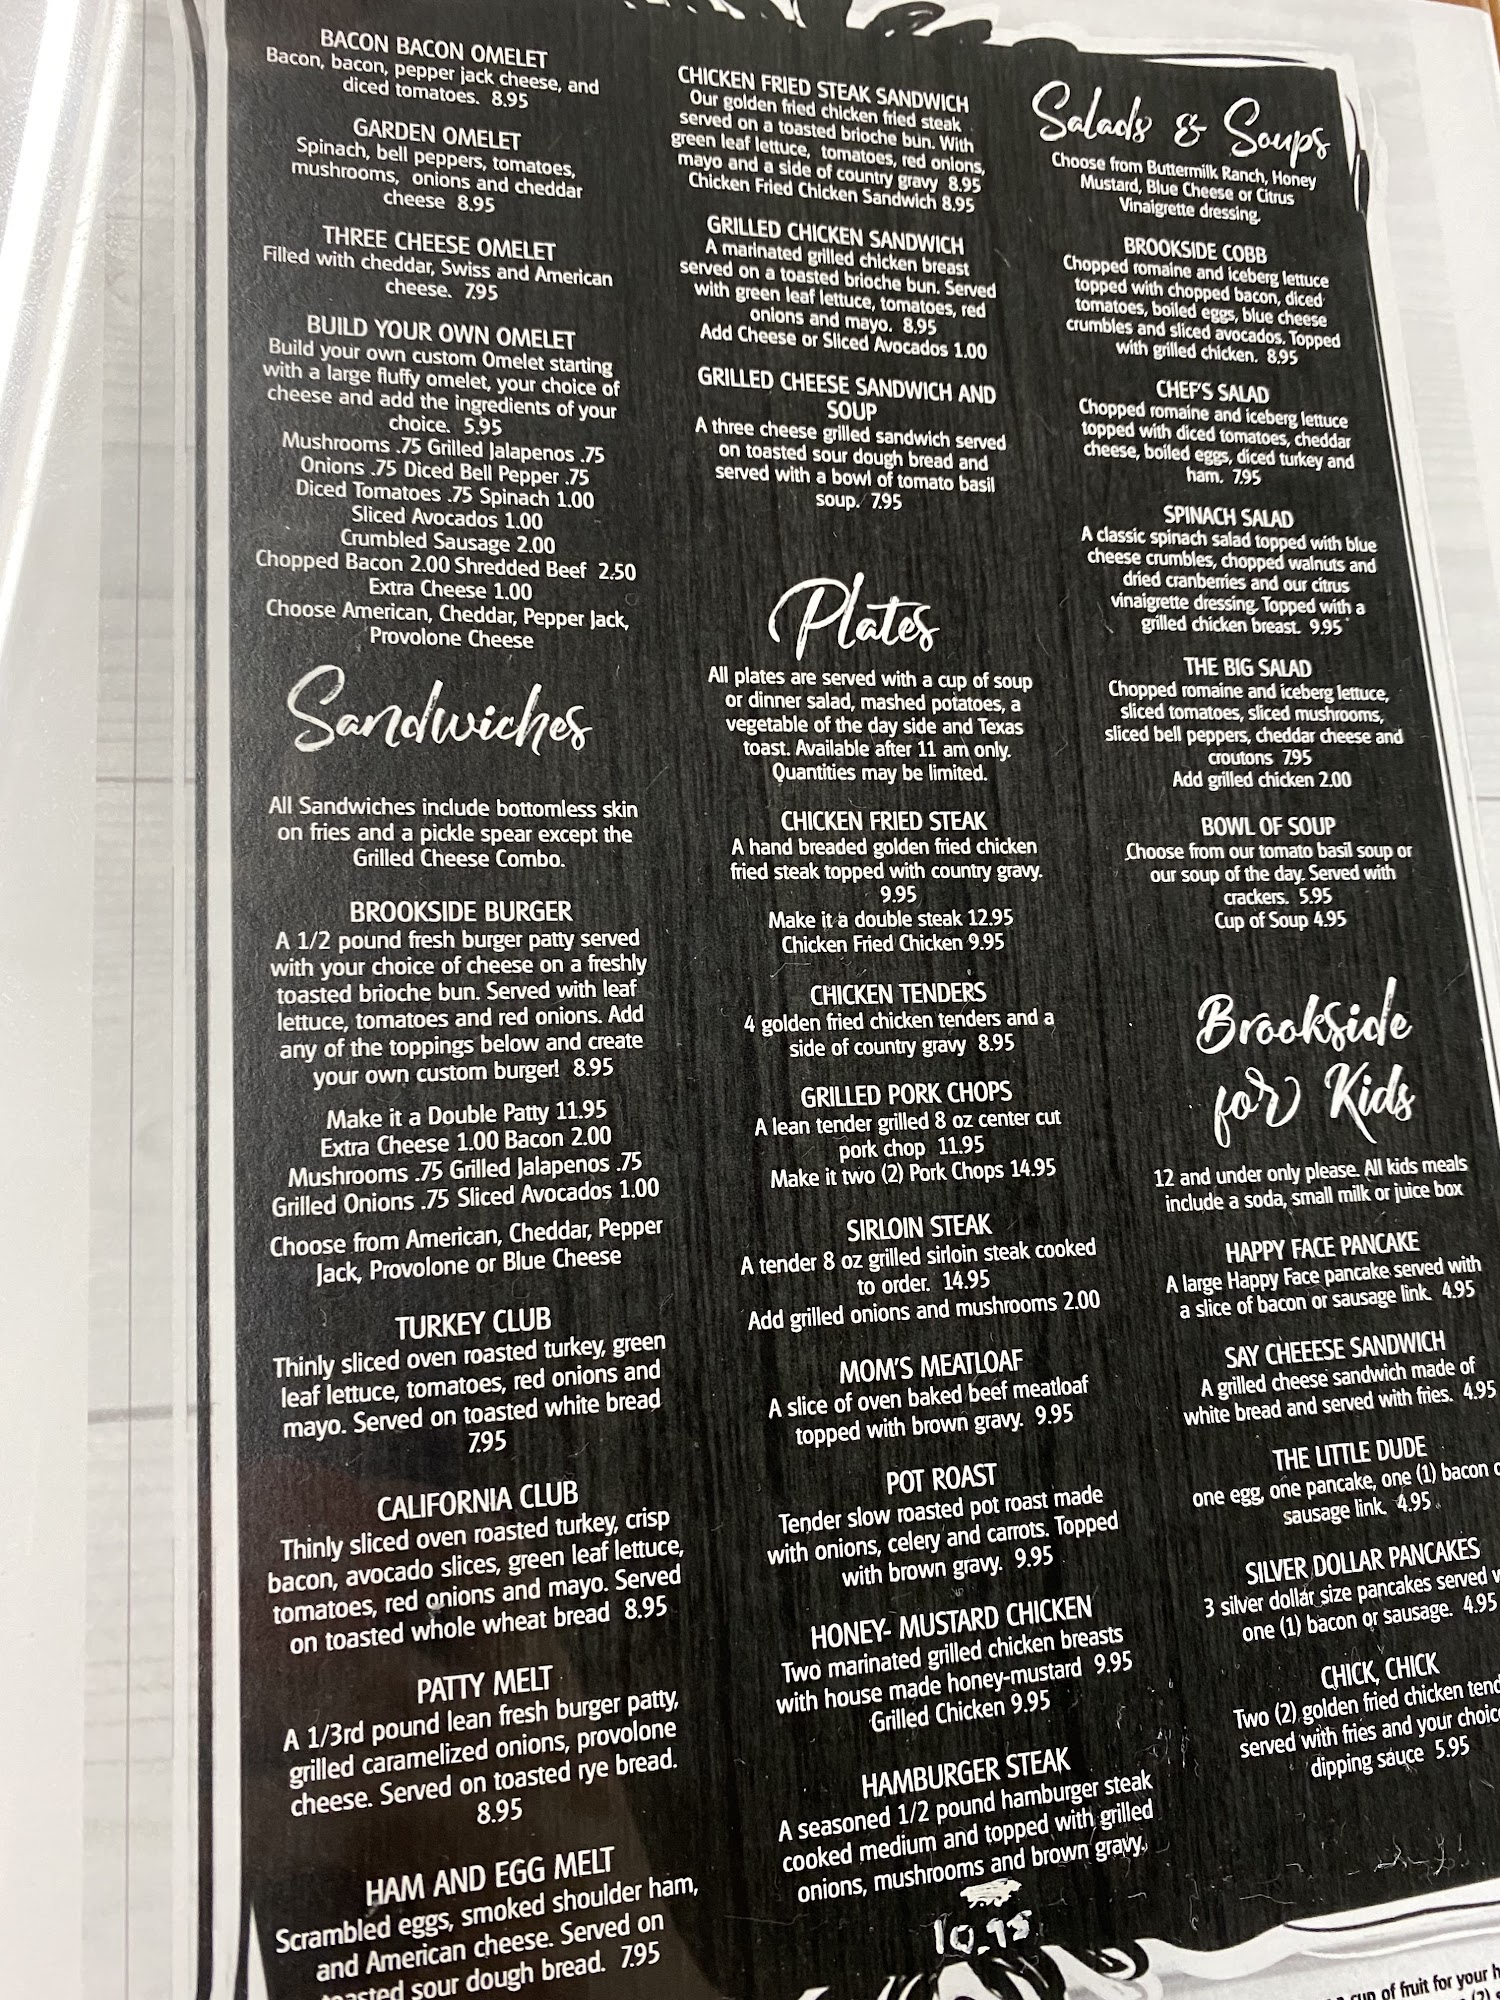 BACON BACON OMELET
Bacon, bacon, pepper jack cheese, and
diced tomatoes. 8.95
GARDEN OMELET
Spinach, bell peppers, tomatoes,
mushrooms, onions and cheddar
cheese 8.95
THREE CHEESE OMELET
Filled with cheddar, Swiss and American
cheese. 7.95
BUILD YOUR OWN OMELET
Build your own custom Omelet starting
with a large fluffy omelet, your choice of
cheese and add the ingredients of your
choice. 5.95
Mushrooms .75 Grilled Jalapenos .75
Onions .75 Diced Bell Pepper .75
Diced Tomatoes .75 Spinach 1.00
Sliced Avocados 1.00
Crumbled Sausage 2.00
Chopped Bacon 2.00 Shredded Beef 2.50
Extra Cheese 1.00
Choose American, Cheddar, Pepper Jack,
Provolone Cheese
Sandwiches
All Sandwiches include bottomless skin
on fries and a pickle spear except the
Grilled Cheese Combo.
BROOKSIDE BURGER
A 1/2 pound fresh burger patty served
with your choice of cheese on a freshly
toasted brioche bun. Served with leaf
lettuce, tomatoes and red onions. Add
any of the toppings below and create
your own custom burger! 8.95
Make it a Double Patty 11.95
Extra Cheese 1.00 Bacon 2.00
Mushrooms .75 Grilled Jalapenos .75
Grilled Onions .75 Sliced Avocados 1.00
Choose from American, Cheddar, Pepper
Jack, Provolone or Blue Cheese
TURKEY CLUB
Thinly sliced oven roasted turkey, green
leaf lettuce, tomatoes, red onions and
mayo. Served on toasted white bread
7.95
CALIFORNIA CLUB
Thinly sliced oven roasted turkey, crisp
bacon, avocado slices, green leaf lettuce,
tomatoes, red onions and mayo. Served
on toasted whole wheat bread 8.95
PATTY MELT
A 1/3rd pound lean fresh burger patty,
grilled caramelized onions, provolone
cheese. Served on toasted rye bread.
8.95
HAM AND EGG MELT
Scrambled eggs, smoked shoulder ham,
and American cheese. Served on
toasted sour dough bread. 7.95
CHICKEN FRIED STEAK SANDWICH
Our golden fried chicken fried steak
served on a toasted brioche bun. With
green leaf lettuce, tomatoes, red onions,
mayo and a side of country gravy 8.95
Chicken Fried Chicken Sandwich 8.95
GRILLED CHICKEN SANDWICH
A marinated grilled chicken breast
served on a toasted brioche bun. Served
with green leaf lettuce, tomatoes, red
onions and mayo. 8.95
Add Cheese or Sliced Avocados 1.00
GRILLED CHEESE SANDWICH AND
SOUP
A three cheese grilled sandwich served
on toasted sour dough bread and
served with a bowl of tomato basil
soup. 7.95
Plates
All plates are served with a cup of soup
or dinner salad, mashed potatoes, a
vegetable of the day side and Texas
toast. Available after 11 am only.
Quantities may be limited.
CHICKEN FRIED STEAK
A hand breaded golden fried chicken
fried steak topped with country gravy.
9.95
Make it a double steak 12.95
Chicken Fried Chicken 9.95
CHICKEN TENDERS
4 golden fried chicken tenders and a
side of country gravy 8.95
GRILLED PORK CHOPS
A lean tender grilled 8 oz center cut
pork chop 11.95
Make it two (2) Pork Chops 14.95
SIRLOIN STEAK
A tender 8 oz grilled sirloin steak cooked
to order. 14.95
Add grilled onions and mushrooms 2.00
MOM'S MEATLOAF
A slice of oven baked beef meatloaf
topped with brown gravy. 9.95
POT ROAST
Tender slow roasted pot roast made
with onions, celery and carrots. Topped
with brown gravy. 9.95
HONEY- MUSTARD CHICKEN
Two marinated grilled chicken breasts
with house made honey-mustard 9.95
Grilled Chicken 9.95
HAMBURGER STEAK
A seasoned 1/2 pound hamburger steak
cooked medium and topped with grilled
onions, mushrooms and brown gravy.
10.95
Salads & Soups
Choose from Buttermilk Ranch, Honey
Mustard, Blue Cheese or Citrus
Vinaigrette dressing.
BROOKSIDE COBB
Chopped romaine and iceberg lettuce
topped with chopped bacon, diced
tomatoes, boiled eggs, blue cheese
crumbles and sliced avocados. Topped
with grilled chicken. 8.95
CHEF'S SALAD
Chopped romaine and iceberg lettuce
topped with diced tomatoes, cheddar
cheese, boiled eggs, diced turkey and
ham. 7.95
SPINACH SALAD
A classic spinach salad topped with blue
cheese crumbles, chopped walnuts and
dried cranberries and our citrus
vinaigrette dressing. Topped with a
grilled chicken breast. 9.95
THE BIG SALAD
Chopped romaine and iceberg lettuce,
sliced tomatoes, sliced mushrooms,
sliced bell peppers, cheddar cheese and
croutons 7.95
Add grilled chicken 2.00
BOWL OF SOUP
Choose from our tomato basil soup or
our soup of the day. Served with
crackers. 5.95
Cup of Soup 4.95
Brookside
for Kids
12 and under only please. All kids meals
include a soda, small milk or juice box
HAPPY FACE PANCAKE
A large Happy Face pancake served with
a slice of bacon or sausage link. 4.95
SAY CHEEESE SANDWICH
A grilled cheese sandwich made of
white bread and served with fries. 4.95
THE LITTLE DUDE
one egg, one pancake, one (1) bacon
sausage link. 4.95
SILVER DOLLAR PANCAKES
3 silver dollar size pancakes served
one (1) bacon or sausage. 4.95
CHICK, CHICK
Two (2) golden fried chicken
served with fries and your choice
dipping sauce 5.95
cup of fruit for your